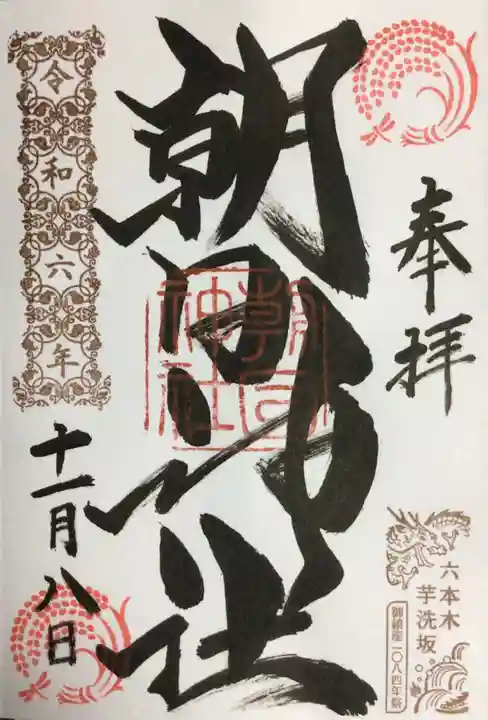 奉拝
朝日神社
朝日
神社
令和六年
十一月八日
六本木
芋洗坂
御鎮座一〇八四年祭